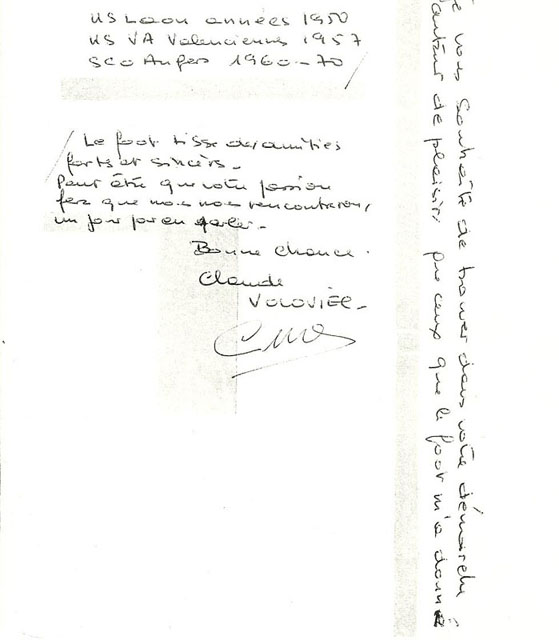 US Laon années 1950
US VA Valenciennes 1957
SCO Angers 1960-70
Le foot tisse des amitiés
forts et sincèrs.
Peut être que votre passion
fera que nous nous rencontrerons,
un jour pour en parler.
Bonne chance.
Claude
VOLOVIEC.
Je vous souhaite de trouver dans votre démarche
autant de plaisir que ceux que le foot m'a donné